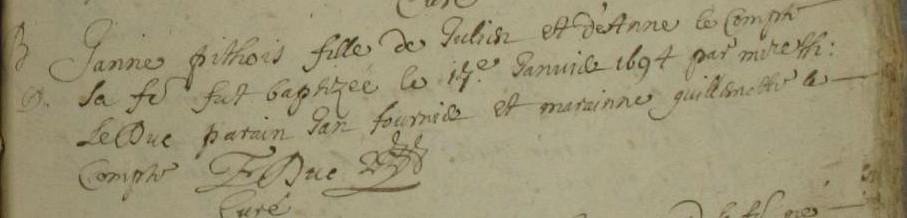 Curé
B Janne pithois fille de Julien et d'Anne le Compte
sa fe fut baptizée le 17e Janvier 1694 par mire th:
Le Duc parain Jan fournier et marainne guillemette le
Compte Le Duc
Curé